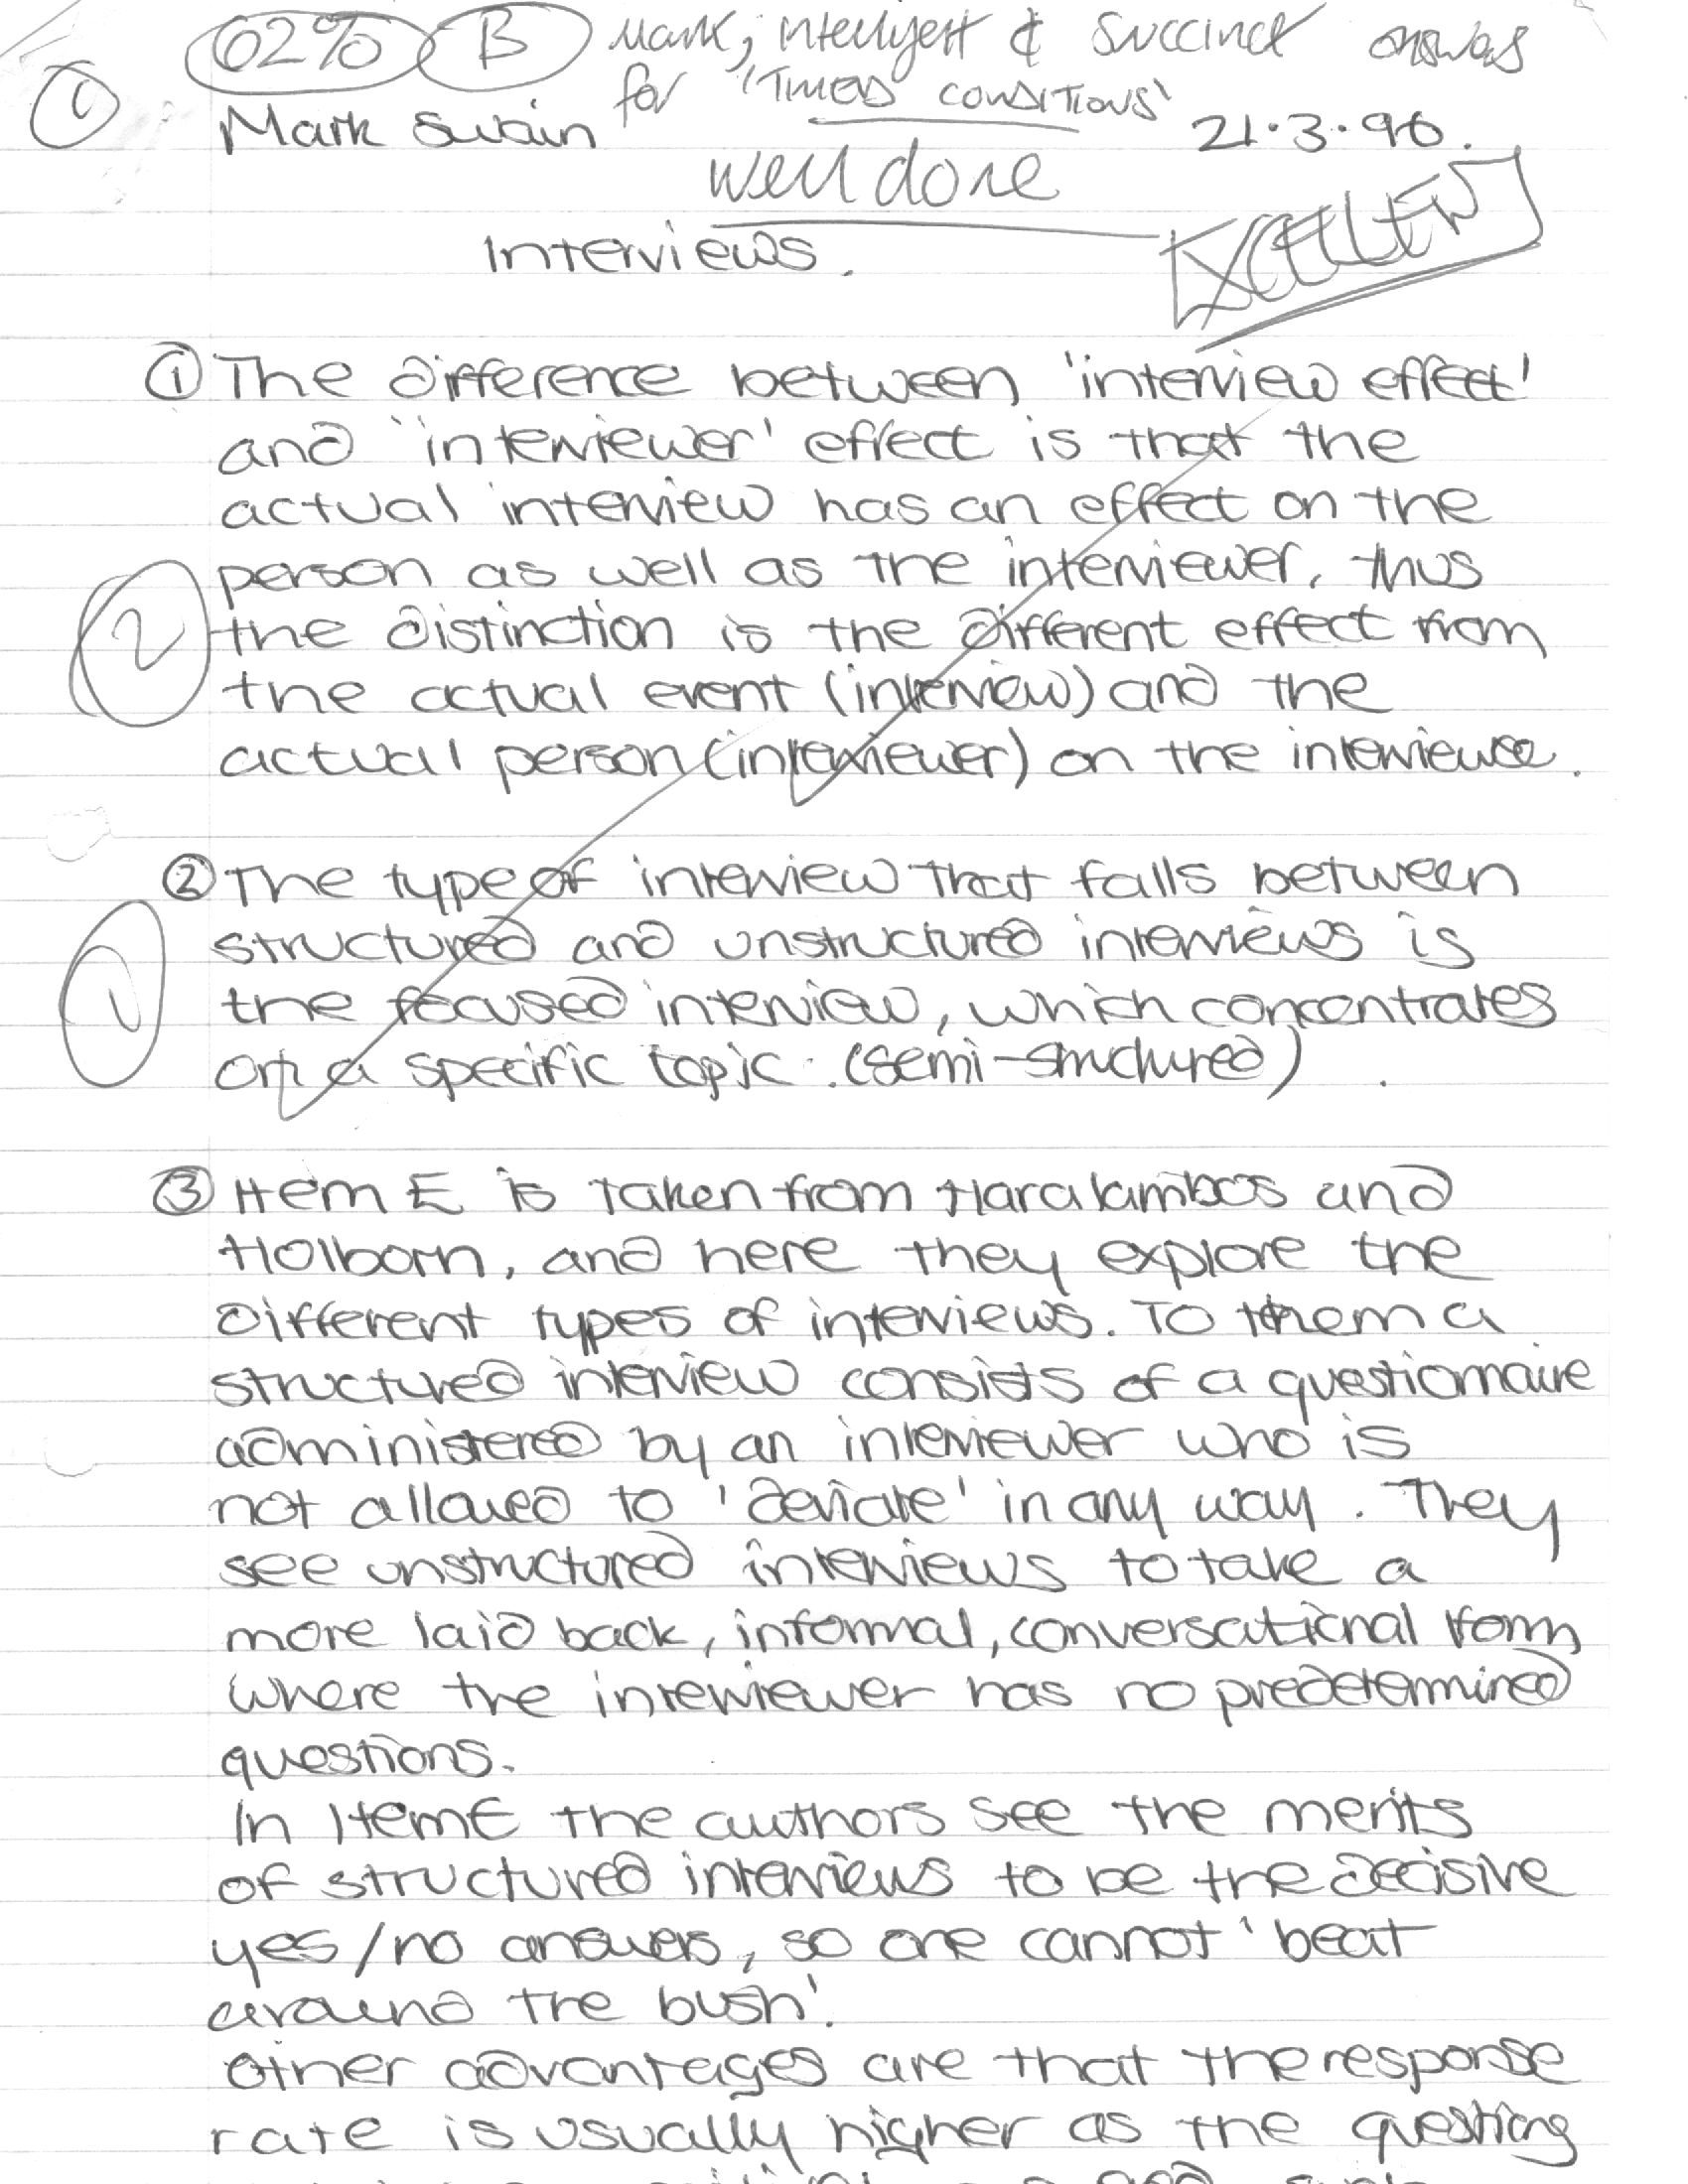 62% B Mark, intelligent & succinct answers
for 'TIMED CONDITIONS'
1
Mark Swain 21.3.96.
well done
EXCELLENT
Interviews.
① The difference between 'interview effect'
and 'interviewer' effect is that the
actual interview has an effect on the
person as well as the interviewer, thus
2
the distinction is the different effect from
the actual event (interview) and the
actual person (interviewer) on the interviewee.
② The type of interview that falls between
structured and unstructured interviews is
1
the focused interview, which concentrates
on a specific topic. (semi-structured)
③ Item E is taken from Haralambos and
Holborn, and here they explore the
different types of interviews. To them a
structured interview consists of a questionnaire
administered by an interviewer who is
not allowed to 'deviate' in any way. They
see unstructured interviews to take a
more laid back, informal, conversational form
where the interviewer has no predetermined
questions.
In Item E the authors see the merits
of structured interviews to be the decisive
yes/no answers, so one cannot 'beat
around the bush'.
Other advantages are that the response
rate is usually higher as the questions